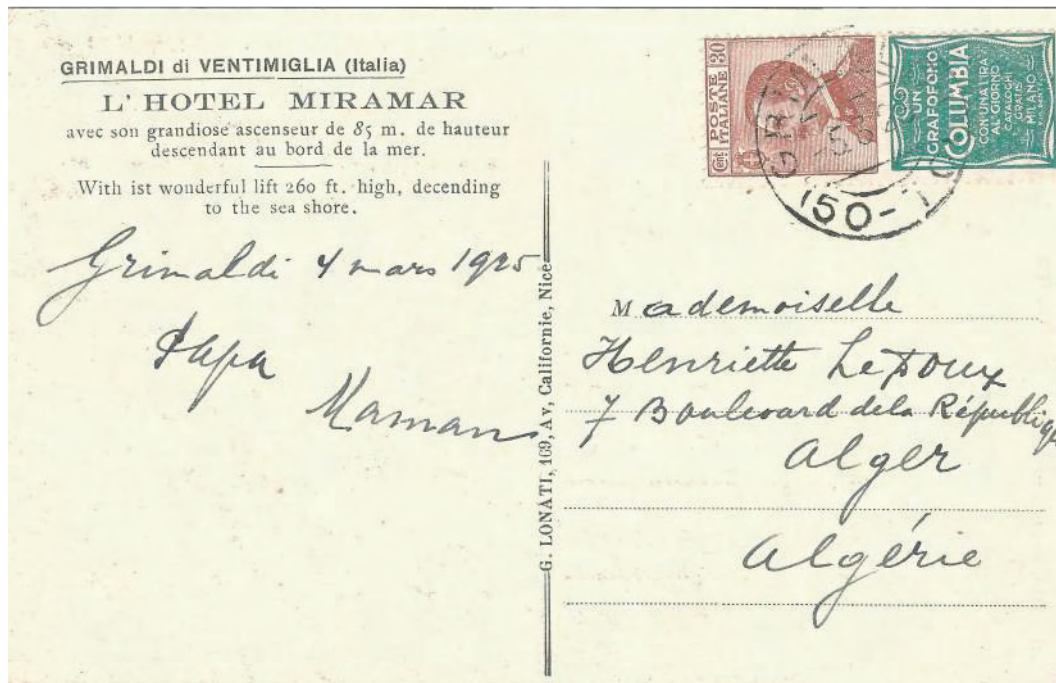 GRIMALDI di VENTIMIGLIA (Italia)
L'HOTEL MIRAMAR
avec son grandiose ascenseur de 85 m. de hauteur
descendant au bord de la mer.
With ist wonderful lift 260 ft. high, decending
to the sea shore.
Grimaldi 4 mars 1925
Papa
Maman
G. LONATI, 109, Av, Californie, Nice
Cent 30
POSTE
ITALIANE
UN
GRAFOFONO
COLUMBIA
CON UNA LIRA
AL GIORNO
CATALOGHI
GRATIS
MILANO
(50-
Mademoiselle
Henriette LeDoux
7 Boulevard de la République
Alger
Algérie